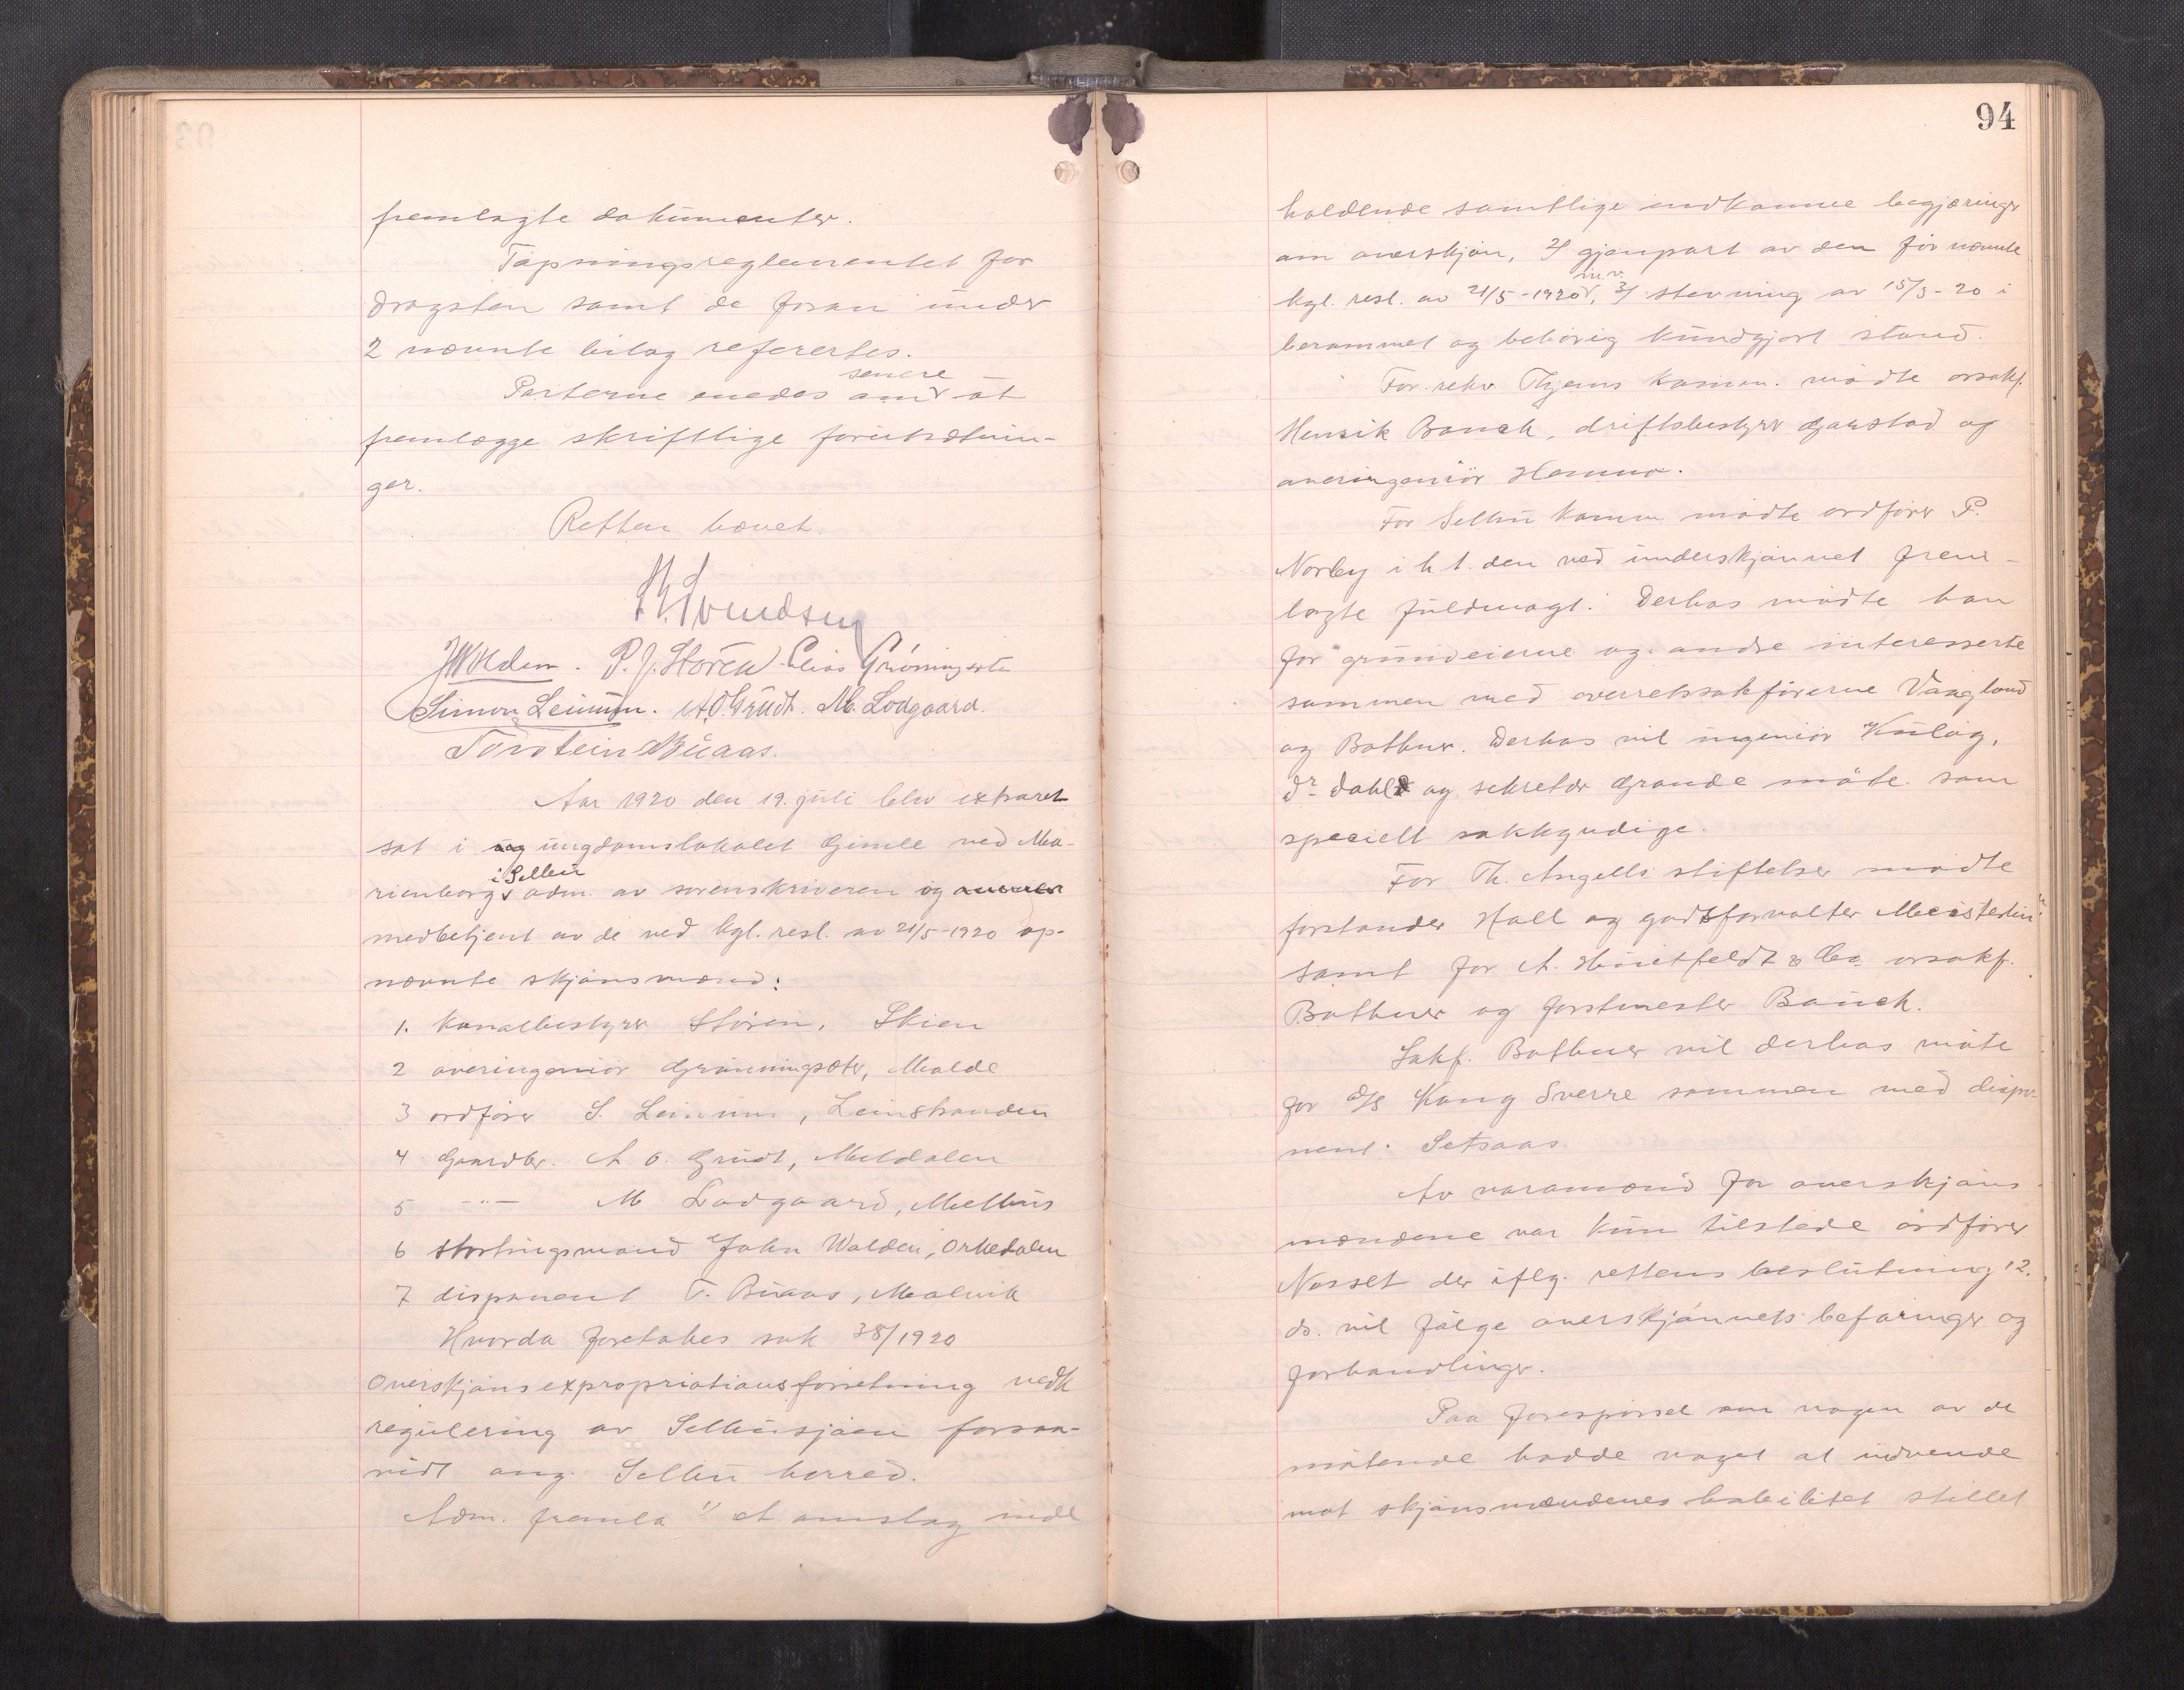 fremlagte dokumenter.
Tapningsreglementet for
Drogsten samt de foran under
2 nævnte bilag referertes.
senere
Parterne enedes om at
fremlægge skriftlige forutsætnin-
ger.
Retten hævet.
H. Svendsen
JWolden. P. J. Støren Elias Grønningsæter
Simon Leinum. A.O. Grudt. M. Lodgaard.
Torstein Buaas.
Aar 1920 den 19. juli blev extraret
sat i ung ungdomslokalet Gimle ved Ma-
i Selbu
rienborg adm. av sorenskriveren og
medbetjent av de ved kgl. resl. av 21/5-1920 op-
nævnte skjønsmænd:
1. Kanalbestyrer Støren, Skien
2 overingeniør Grønningsæter, Molde
3 ordfører S. Leinum, Leinstranden
4 Gaardbr. A. O. Grudt, Meldalen
5 -"- M. Lodgaard, Melhus
6 stortingsmand John Wolden, Orkedalen
7 disponent T. Buaas, Malvik
Hvorda foretokes sak 38/1920
Overskjønsexpropriationsforretning vedk
regulering av Selbusjøen forsaa-
vidt ang. Selbu herred.
Adm. fremla 1) et omslag inde
94
holdende samtlige indkomne begjæringer
om overskjøn, 2/ gjenpart av den før nævnte
m.v.
kgl. resl. av 21/5-1920, 3/ stevning av 15/3-20 i
berammet og behørig kundgjort stand.
For rekv. Thjems komm. mødte orsakf.
Henrik Bauck, driftsbestyrer Garstad og
overingeniør Hemmo.
For Selbu komm. mødte ordfører P.
Norby i h t. den ved underskjønnet frem-
lagte fuldmagt. Derhos mødte han
for grundeierne og andre interesserte
sammen med overretssakførerne Vaagland
og Bothner. Derhos vil ingeniør Kulög,
Dr. Dahl og sekretær Grande møte som
specielt sakkyndige.
For Th. Angells stiftelser mødte
forstander Hall og godsforvalter Meisterlin
samt for A. Huitfeldt & Co. orsakf.
Bothner og forstmester Bauck.
Sakf. Bothner vil derhos møte
for A/S Kong Sverre sammen med dispo-
nent Setsaas.
Av varamænd for overskjøns
mændene var kun tilstede ordfører
Nosset der iflg. rettens beslutning 12.
ds. vil følge overskjønnets befaringer og
forhandlinger.
Paa forespørsel om nogen av de
møtende hadde noget at indvende
mot skjønsmændenes habilitet stillet